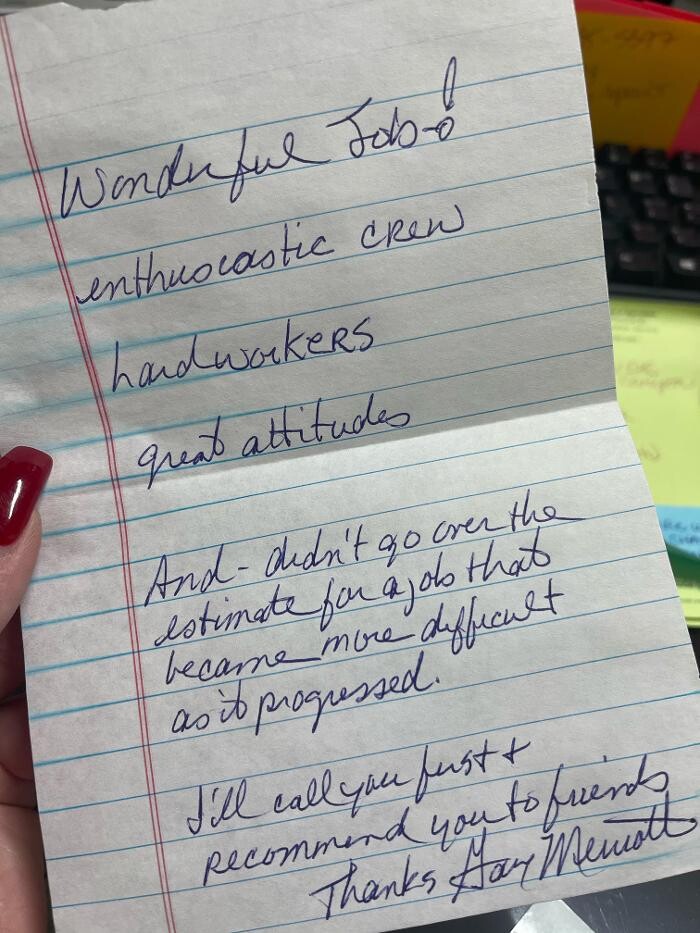 Wonderful Job-!
enthusiastic crew
hardworkers
great attitudes
And - didn't go over the
estimate for a job that
became more difficult
as it progressed.
I'll call you first +
recommend you to friends
Thanks